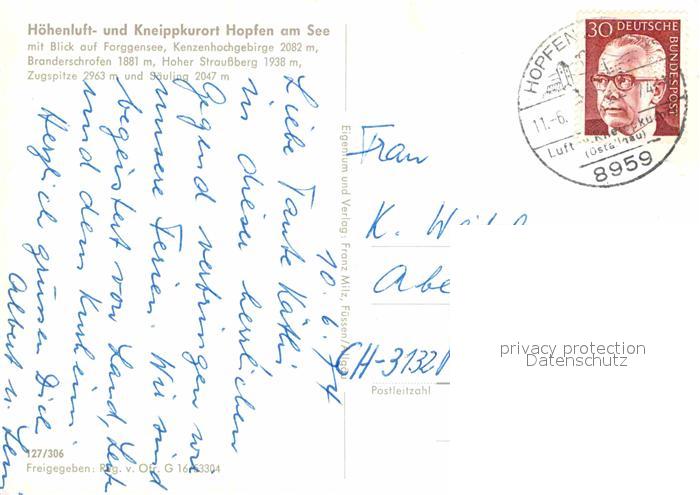 Höhenluft- und Kneippkurort Hopfen am See
mit Blick auf Forggensee, Kenzenhochgebirge 2082 m,
Branderschrofen 1881 m, Hoher Straußberg 1938 m,
Zugspitze 2963 m und Säuling 2047 m
10. 6. 74
Liebe Tante Käthi
In dieser herrlichen
Gegend verbringen wir
unsere Ferien. Wir sind
begeistert von Land, Leute
und dem Kurheim.
Herzlich grüssen Dich
Albert u.
127/306
Freigegeben: Reg. v. Obb. G 16/63304
Eigentum und Verlag: Franz Milz, Füssen/Allgäu
30 DEUTSCHE
BUNDESPOST
HOPFEN
11.-6.
Luft- u. Kneippkurort
(Ostallgäu)
8959
Frau
K.
CH-3132
Postleitzahl
privacy protection
Datenschutz